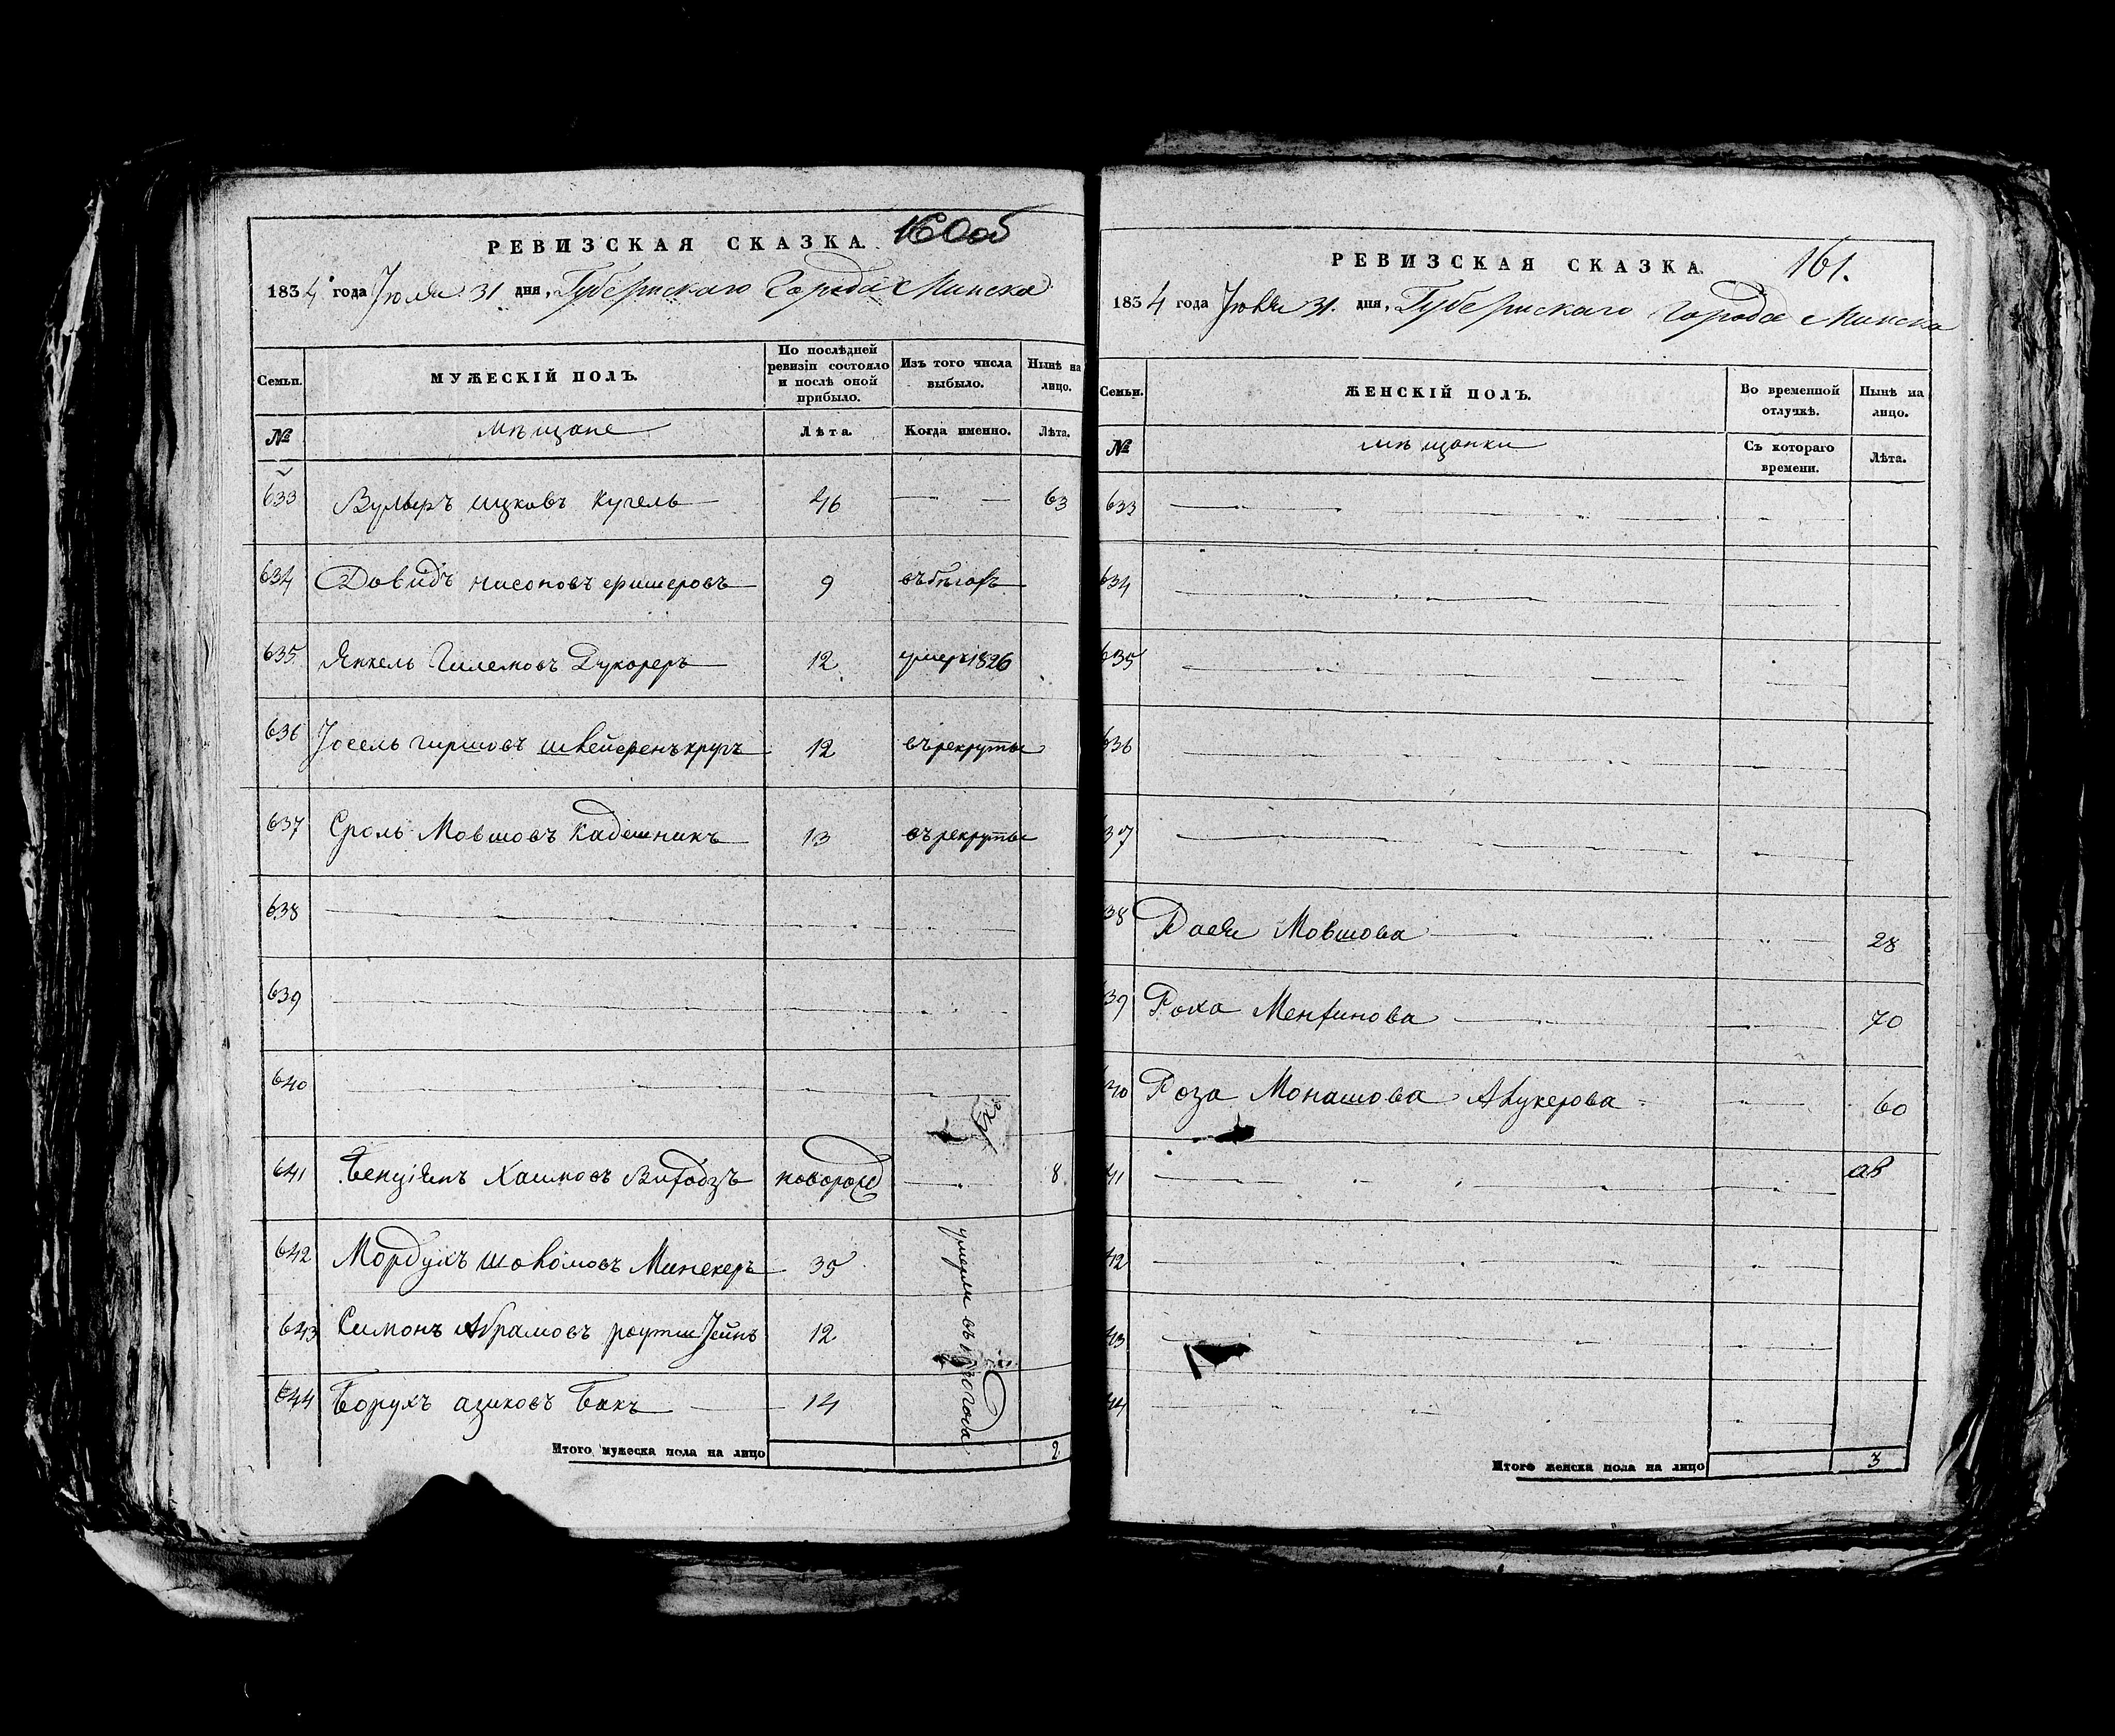 РЕВИЗСКАЯ СКАЗКА. 160об
1834 года Іюля 31 дня, Губернскаго Города Минска
Семьи. МУЖЕСКІЙ ПОЛЪ. По послѣдней ревизіи состояло и послѣ оной прибыло. Изъ того числа выбыло. Нынѣ на лицо.
№ мѣщане Лѣта. Когда именно. Лѣта.
633 Вульфъ Ицковъ Кугель 46 63
634 Давидъ Нисоновъ Фишеровъ 9 въ бѣгахъ
635 Янкель Дукореръ 12 умеръ 1826
636 Іосель Гиршовъ 12 въ рекруты
637 Сроль Мовшовъ Кадешникъ 13 въ рекруты
638
639
640
641 Хаимовъ новорожд 8
642 Мордухъ Шоломовъ 35
643 Симонъ Абрамовъ 12
644 Борухъ Бакъ 14
умерли въ года
Итого мужеска пола на лицо 2
РЕВИЗСКАЯ СКАЗКА. 161.
1834 года Іюля 31. дня, Губернскаго города Минска
Семьи. ЖЕНСКІЙ ПОЛЪ. Во временной отлучкѣ. Нынѣ на лицо.
№ мѣщанки Съ котораго времени. Лѣта.
633
634
635
636
37
38 Мовшова 28
39 70
40 Роза Монашова 60
41
42
43
44
Итого женска пола на лицо 3